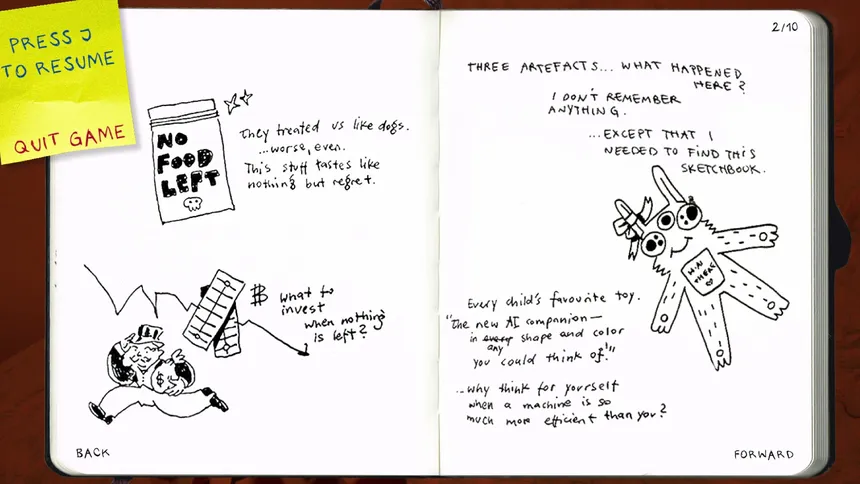 PRESS J
TO RESUME
QUIT GAME
NO
FOOD
LEFT
They treated us like dogs.
...worse, even.
This stuff tastes like
nothing but regret.
$
What to
invest
when nothing
is left?
BACK
2/10
THREE ARTEFACTS... WHAT HAPPENED
HERE?
I DON'T REMEMBER
ANYTHING.
...EXCEPT THAT I
NEEDED TO FIND THIS
SKETCHBOOK.
Every child's favourite toy.
"The new AI companion—
in every shape and color
any
you could think of!"
...why think for yourself
when a machine is so
much more efficient than you?
FORWARD